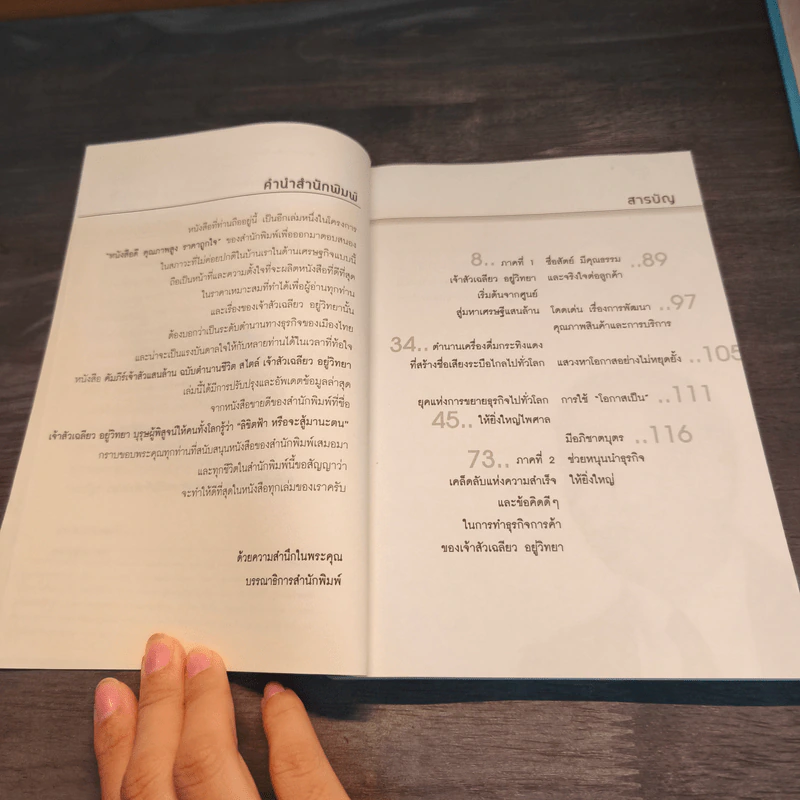 คำนำสำนักพิมพ์
หนังสือที่ท่านถืออยู่นี้ เป็นอีกเล่มหนึ่งในโครงการ
"หนังสือดี คุณภาพสูง ราคาถูกใจ" ของสำนักพิมพ์เพื่อออกมาตอบสนอง
ในสภาวะที่ไม่ค่อยปกติในบ้านเราในด้านเศรษฐกิจแบบนี้
ถือเป็นหน้าที่และความตั้งใจที่จะผลิตหนังสือที่ดีที่สุด
ในราคาเหมาะสมที่ทำได้เพื่อผู้อ่านทุกท่าน
และเรื่องของเจ้าสัวเฉลียว อยู่วิทยานั้น
ต้องบอกว่าเป็นระดับตำนานทางธุรกิจของเมืองไทย
และน่าจะเป็นแรงบันดาลใจให้กับหลายท่านได้ในเวลาที่ท้อใจ
หนังสือ คัมภีร์เจ้าสัวแสนล้าน ฉบับตำนานชีวิต สไตล์ เจ้าสัวเฉลียว อยู่วิทยา
เล่มนี้ได้มีการปรับปรุงและอัพเดตข้อมูลล่าสุด
จากหนังสือขายดีของสำนักพิมพ์ที่ชื่อ
เจ้าสัวเฉลียว อยู่วิทยา บุรุษผู้พิสูจน์ให้คนทั้งโลกรู้ว่า "ลิขิตฟ้า หรือจะสู้มานะตน"
กราบขอบพระคุณทุกท่านที่สนับสนุนหนังสือของสำนักพิมพ์เสมอมา
และทุกชีวิตในสำนักพิมพ์นี้ขอสัญญาว่า
จะทำให้ดีที่สุดในหนังสือทุกเล่มของเราครับ
ด้วยความสำนึกในพระคุณ
บรรณาธิการสำนักพิมพ์
สารบัญ
8.. ภาคที่ 1
เจ้าสัวเฉลียว อยู่วิทยา
เริ่มต้นจากศูนย์
สู่มหาเศรษฐีแสนล้าน
34.. ตำนานเครื่องดื่มกระทิงแดง
ที่สร้างชื่อเสียงระบือไกลไปทั่วโลก
ยุคแห่งการขยายธุรกิจไปทั่วโลก
45.. ให้ยิ่งใหญ่ไพศาล
73.. ภาคที่ 2
เคล็ดลับแห่งความสำเร็จ
และข้อคิดดีๆ
ในการทำธุรกิจการค้า
ของเจ้าสัวเฉลียว อยู่วิทยา
ซื่อสัตย์ มีคุณธรรม ..89
และจริงใจต่อลูกค้า
โดดเด่น เรื่องการพัฒนา ..97
คุณภาพสินค้าและการบริการ
แสวงหาโอกาสอย่างไม่หยุดยั้ง ..105
การใช้ "โอกาสเป็น" ..111
มีอภิชาตบุตร ..116
ช่วยหนุนนำธุรกิจ
ให้ยิ่งใหญ่